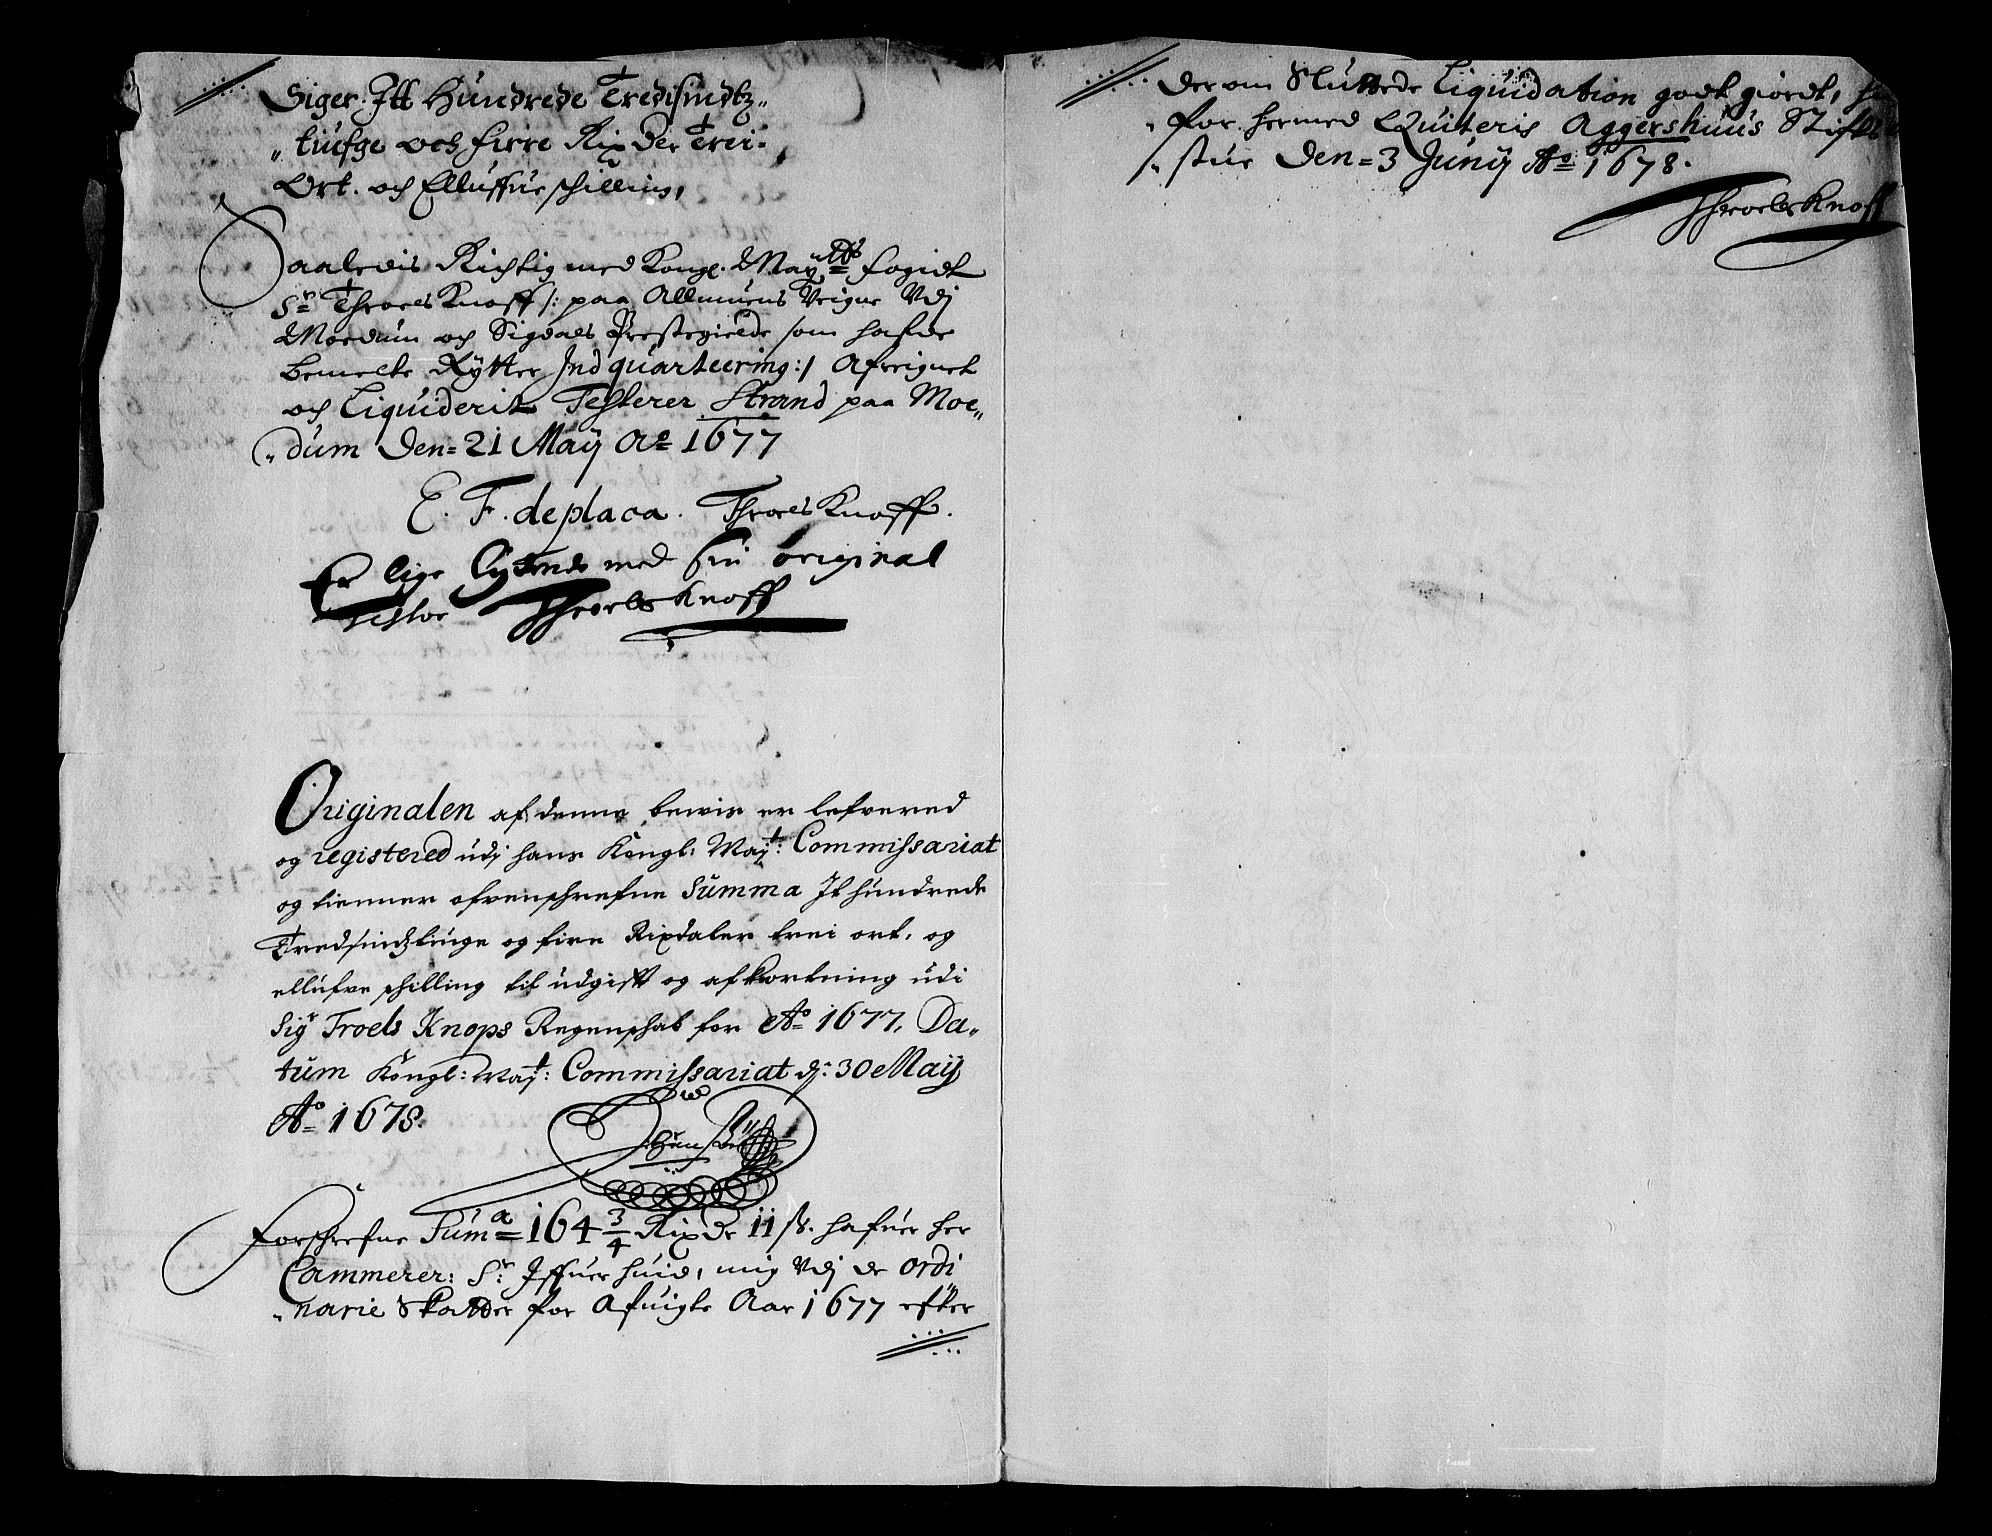 Siger Jtt Hundrede Tredisindtz„
„tiufge och firre Rix Der Trei:
Ort. och Elluffue schilling,
Saaledis Richtig med Kongl. May„tts fogidt
Sr Throels Knoff /: paa Allmuens Veigne Vdj
Modum och Sigdals Prestegielde som hafde
bemelte Rytter Indquarteering :/ Afreignet
och Liquiderit Testerer Strand paa Moe„
„dum Den= 21 Maij Ao 1677
E. F. deplaca. Throels Knoff.
Er lige Lydende med sin original
Testor Throels Knoff
Originalen af denne bewis er lefvered
og registered udj hans Kongl: Maijt: Commissariat
og tienner ofvenschrefne Summa It hundrede
Tredsindztiuge og fire Rixdaler trei ort, og
ellufve schilling til udgift og afkortning udi
Sigr Troels Knops Regenschab for Ao 1677, Da„
tum Kongl: Maijt: Commissariat dj: 30 Maij
Ao 1678.
forschrefne Suma 164 3/4 Rix Dr 11 s. hafuer her
Cammerer: Sr: Iffuer huid, mig Vdj de ordi
„narie Skatter for Afuigte Aar 1677 efter
Derom Sluttede Liquidation godt giordt,
„for hermed Quiteris Aggershuus Stift
„stue Den= 3 Junij Ao 1678.
Throels Knoff